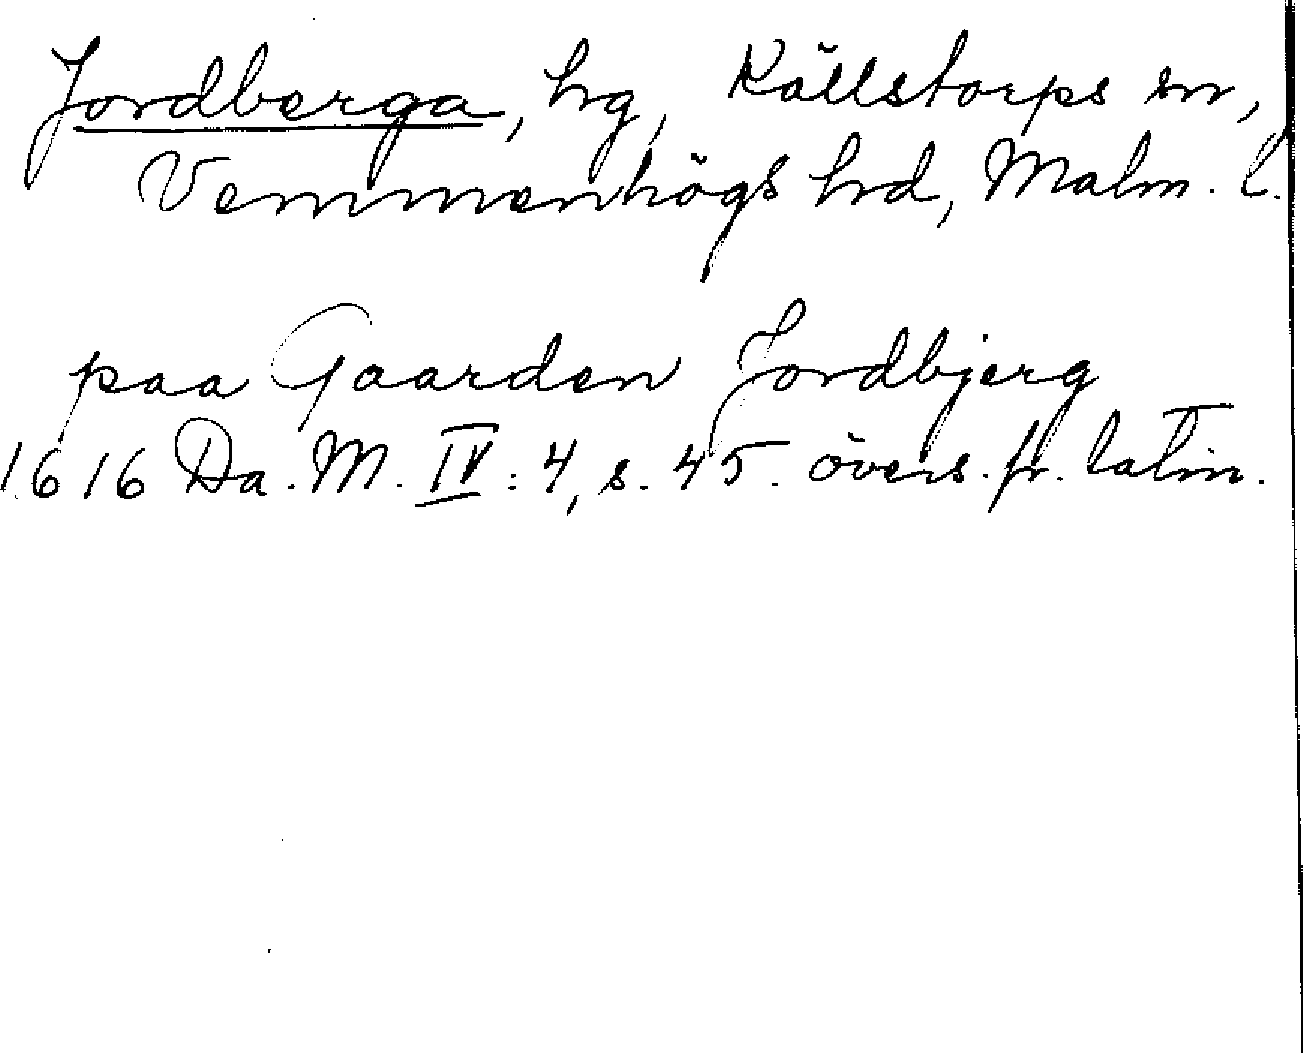 Jordberga, hg, Källstorps sn,
Vemmenhögs hrd, Malm. l.
paa Gaarden Jordbjerg
1616 Da. M. IV: 4, s. 45. övers. fr. latin.